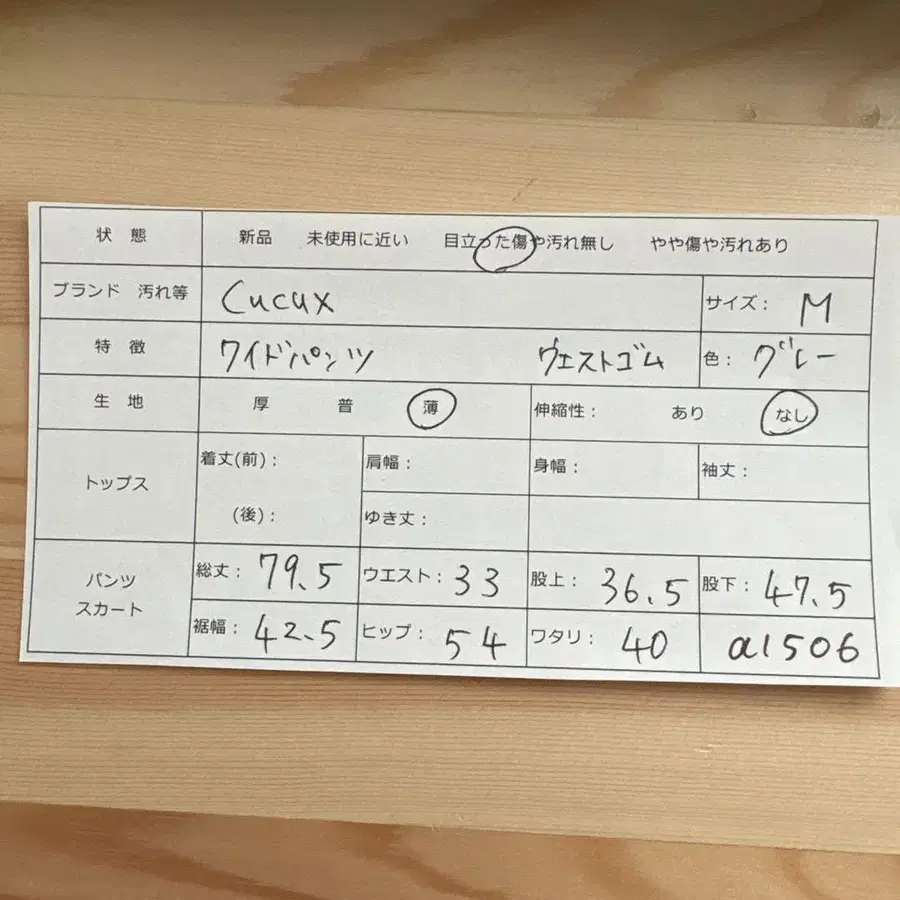 状 態 新品 未使用に近い 目立った傷や汚れ無し やや傷や汚れあり
ブランド 汚れ等 Cucux サイズ： M
特 徴 ワイドパンツ ウエストゴム 色： グレー
生 地 厚 普 薄 伸縮性： あり なし
トップス 着丈(前)： 肩幅： 身幅： 袖丈：
(後)： ゆき丈：
パンツ スカート 総丈： 79.5 ウエスト： 33 股上： 36.5 股下： 47.5
裾幅： 42.5 ヒップ： 54 ワタリ： 40 a1506